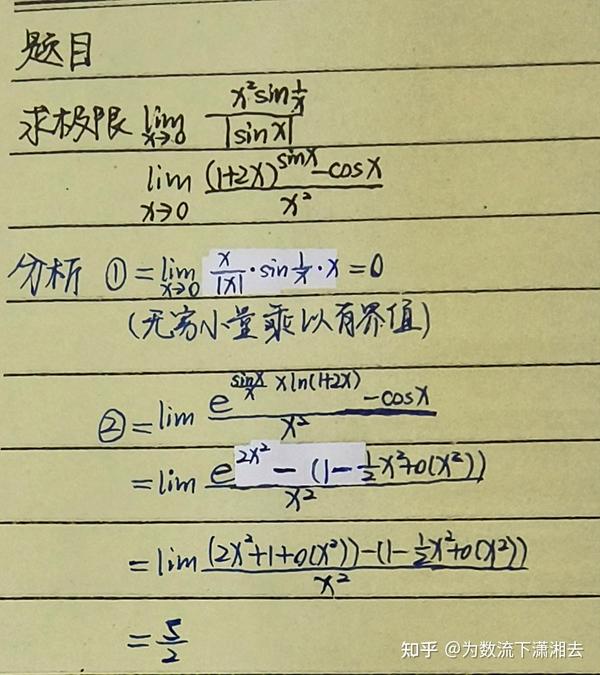 题目
求极限 lim x→0 x²sin 1/x / |sinx|
lim x→0 (1+2x)^sinx - cosx / x²
分析 ① = lim x→0 x/|x| · sin 1/x · x = 0
(无穷小量乘以有界值)
② = lim e^(sinx/x xln(1+2x)) - cosx / x²
= lim e^(2x²) - (1 - 1/2 x² + o(x²)) / x²
= lim (2x²+1+o(x²)) - (1 - 1/2 x² + o(x²)) / x²
= 5/2
知乎 @为数流下潇湘去